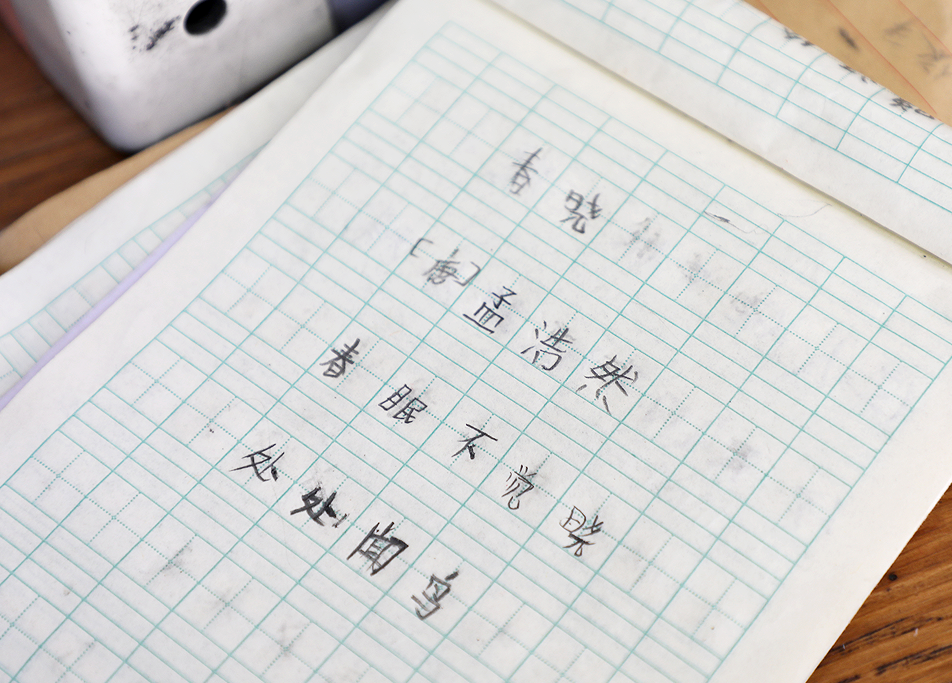 春晓
[唐]孟浩然
春眠不觉晓
处处闻鸟